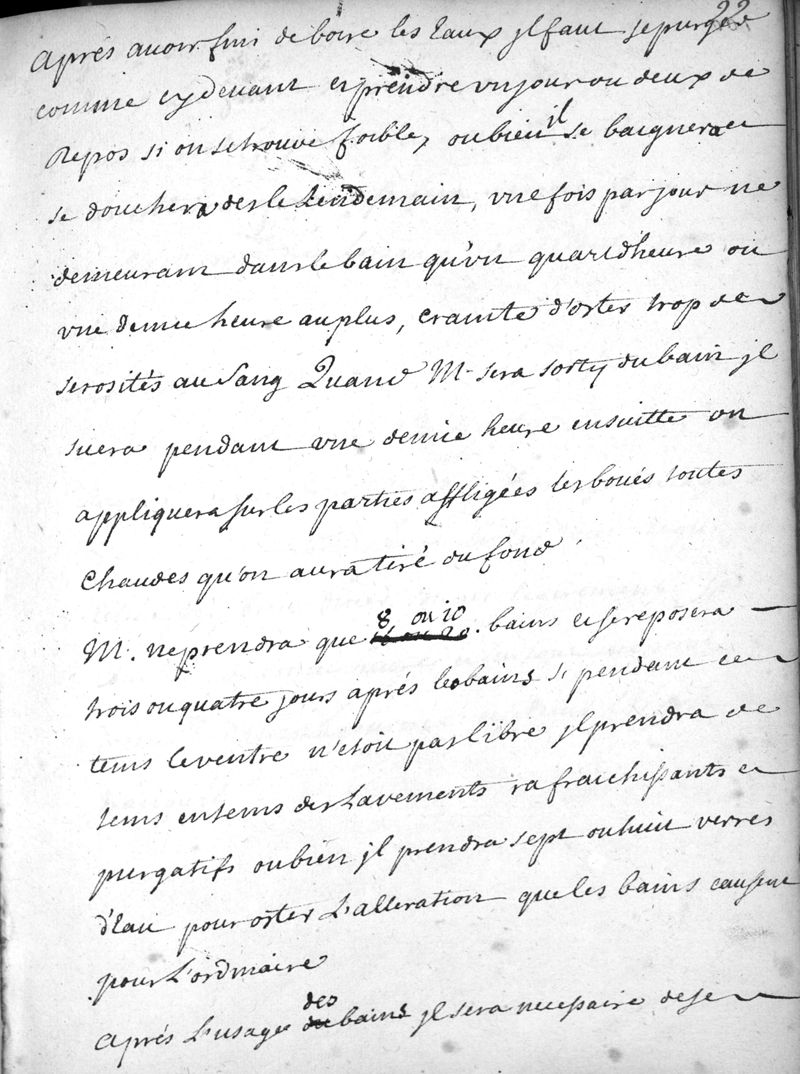 22
Aprés auoir fini de boire les Eaux jl faut se purger
comme cy devant et prendre vn jour ou deux de
Repos si on se trouve foible, ou bien il se baignera et
se douchera des le Lendemain, vne fois par jour ne
demeurant dans le bain qu'vn quart d'heure ou
vne demie heure au plus, crainte d'oster trop de
serosités au Sang Quand M. sera sorty du bain jl
suera pendant vne demie heure ensuitte on
appliquera sur les parties affligées les boués toutes
chaudes qu'on aura tiré du fond.
M. ne prendra que 8 ou 10 bains et se reposera
trois ou quatre jours aprés les bains si pendant ce
tems le ventre n'etoit pas libre jl prendra de
tems en tems des Lavements rafraichissants et
purgatifs ou bien jl prendra sept ou huit verres
d'Eau pour oster L'alteration que les bains causent
pour L'ordinaire
Aprés L'usage des bains jl sera necessaire de se